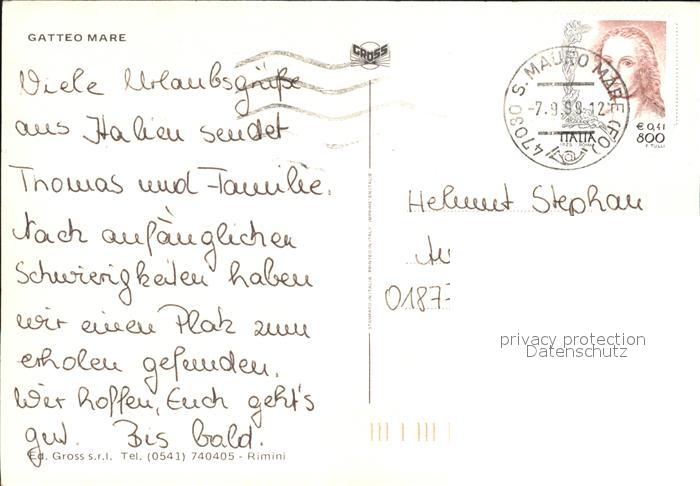 GATTEO MARE
GROSS
Viele Urlaubsgrüße
aus Italien sendet
Thomas und Familie.
Nach anfänglichen
Schwierigkeiten haben
wir einen Platz zum
erholen gefunden.
Wir hoffen, Euch geht's
gut. Bis bald.
Ed. Gross s.r.l. Tel. (0541) 740405 - Rimini
47030 S. MAURO MARE (FO)
-7.9.99-12
€ 0,41
ITALIA 800
Helmut Stephan
0187
privacy protection
Datenschutz